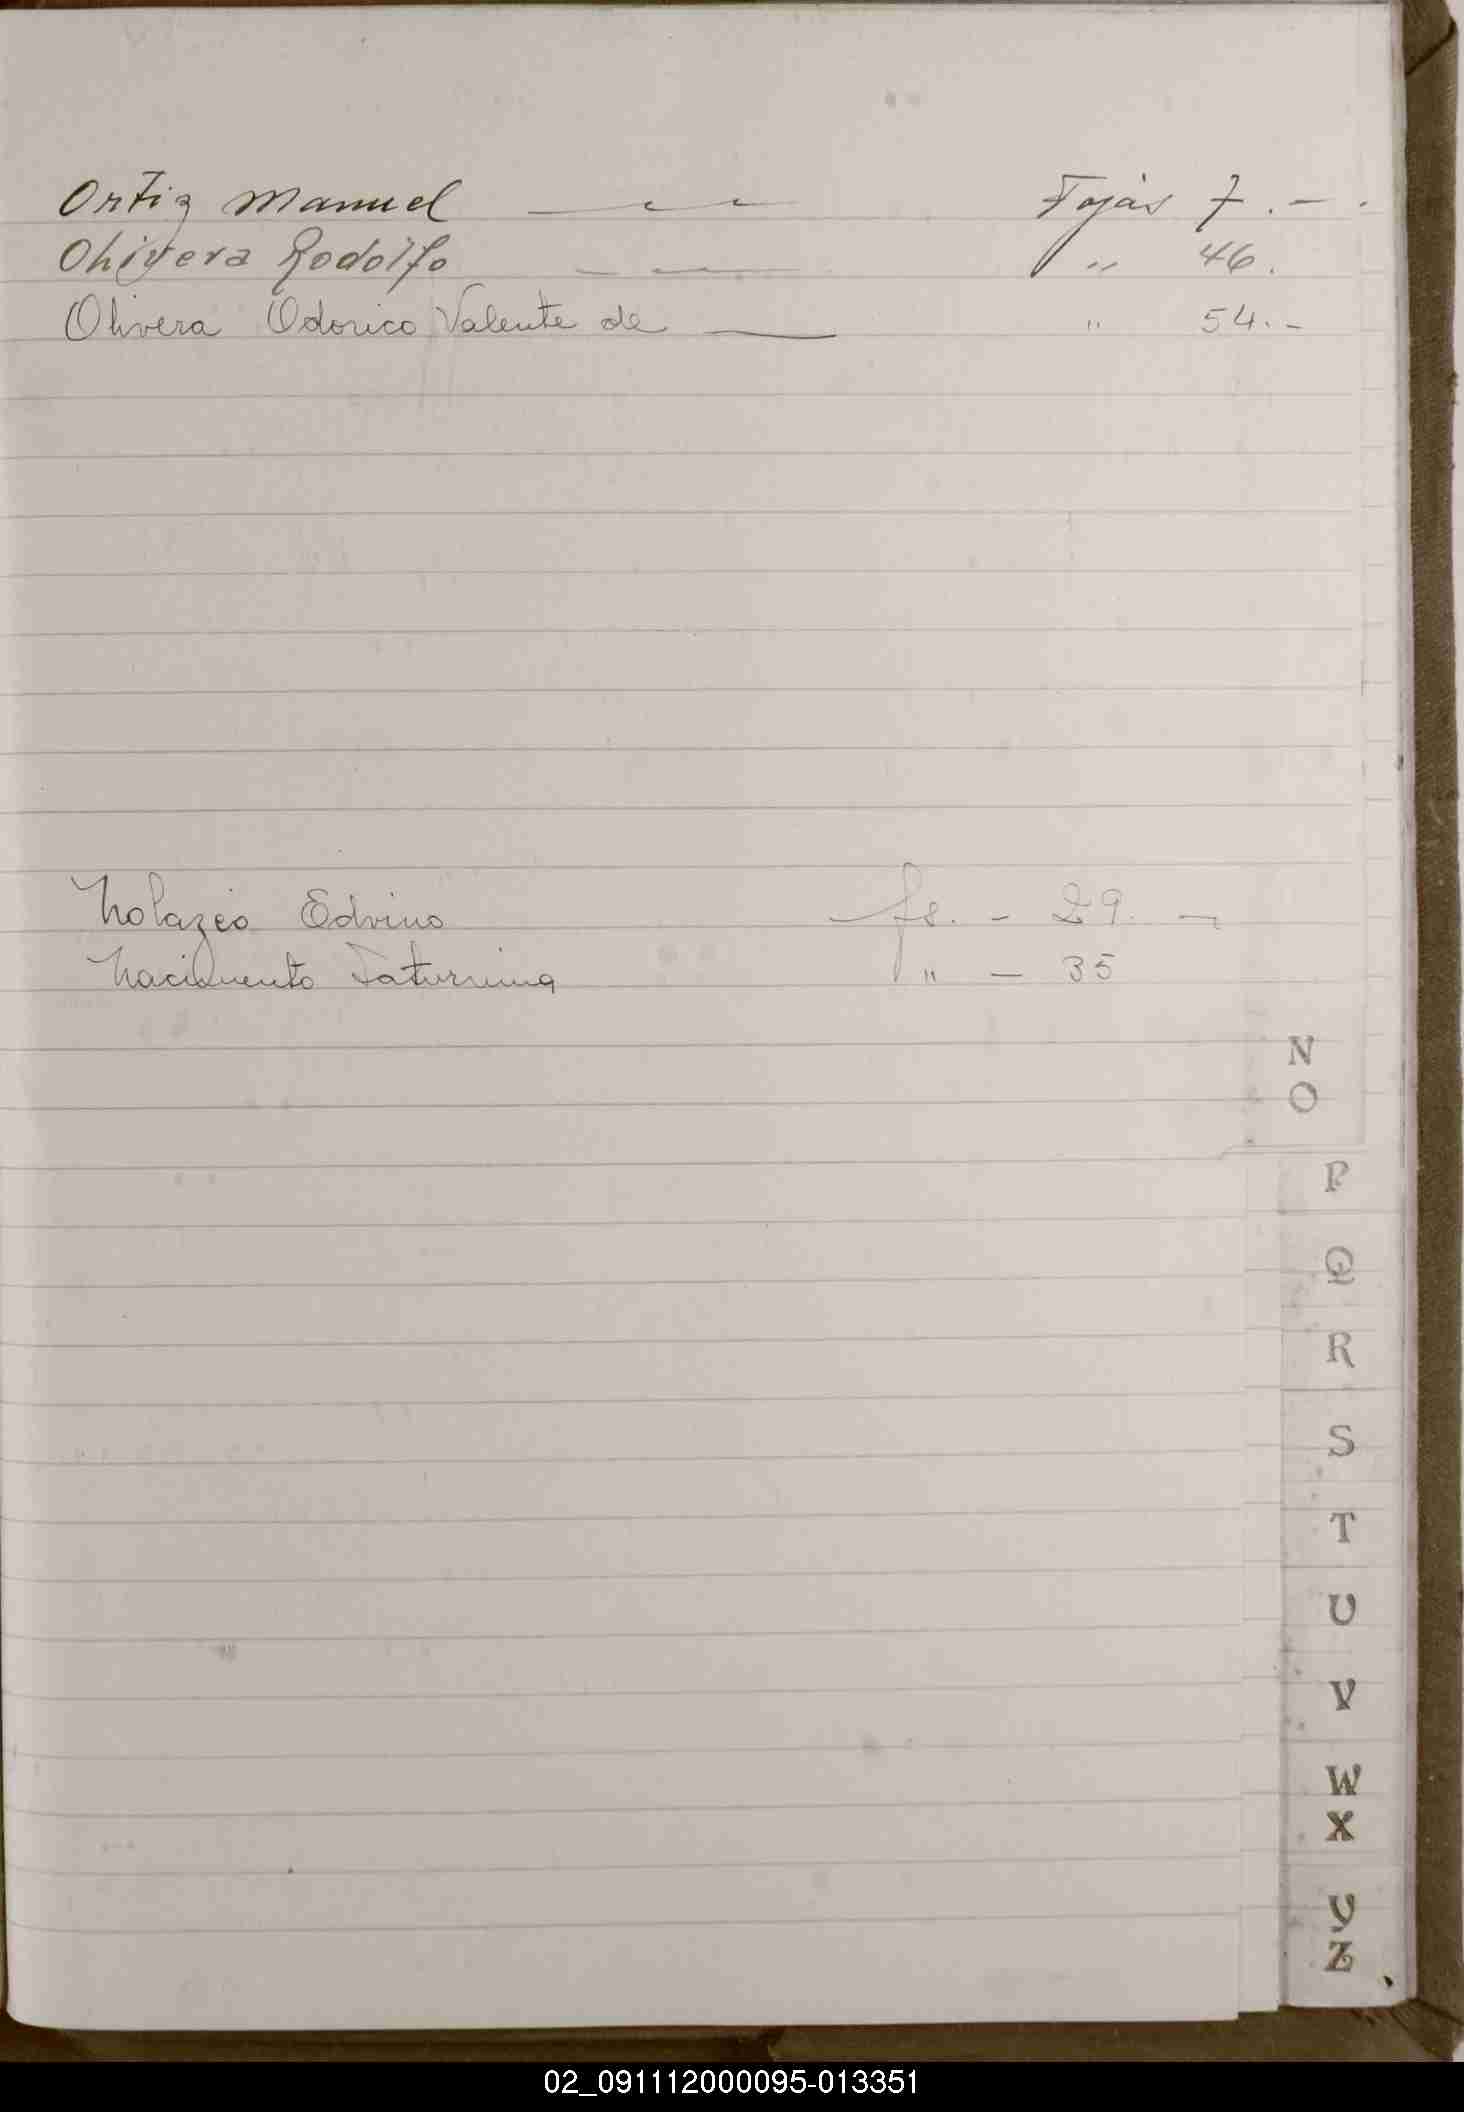 Ortiz Manuel — Fojas 7.-.
Olivera Rodolfo — " 46.
Olivera Odorico Valente de — " 54.-
Nolazco Edvino fs. - 29. -
Nacimento Saturnina " — 35
N
O
P
Q
R
S
T
U
V
W
X
Y
Z
02_091112000095-013351